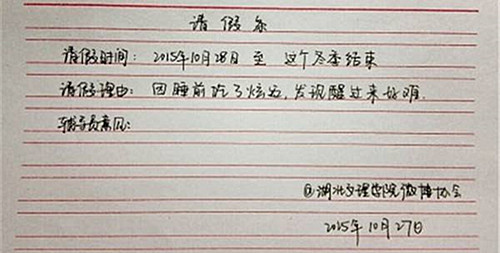 请假条
请假时间：2015年10月28日 至 这个冬季结束
请假理由：因睡前吃了炫迈，发现醒过来好难.
辅导员意见：
@湖北文理学院微博协会
2015年10月27日